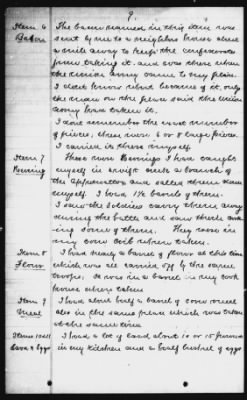 9
Item 6 The bacon claimed in this item was
Bacon sent by me to a neighbors house about
a mile away to keep the confederates
from taking it. and was there when
the union army came to my place.
I dont know what became of it, only
the man on the place said the union
army had taken it.
I dont remember the exact number
of pieces, there were 6 or 8 large pieces.
I carried it there myself
Item 7 These were Herrings I had caught
Herring myself in a branch of
the Appomattox, and salted them down
myself. I had 1½ barrels of them.
I saw the soldiers carry them away
during the battle and saw them
some of them. They were in
my corn crib when taken.
Item 8 I had nearly a barrel of flour at this time
Flour which was all carried off by the same
troops. It was in a barrel in my
house when taken
Item 9 I had about half a barrel of corn meal
Meal also in the same place which was taken
at the same time.
Items 10&11 I had a lot of lard about 10 or 15 pounds
Lard & Eggs in my kitchen and a half bushel of eggs